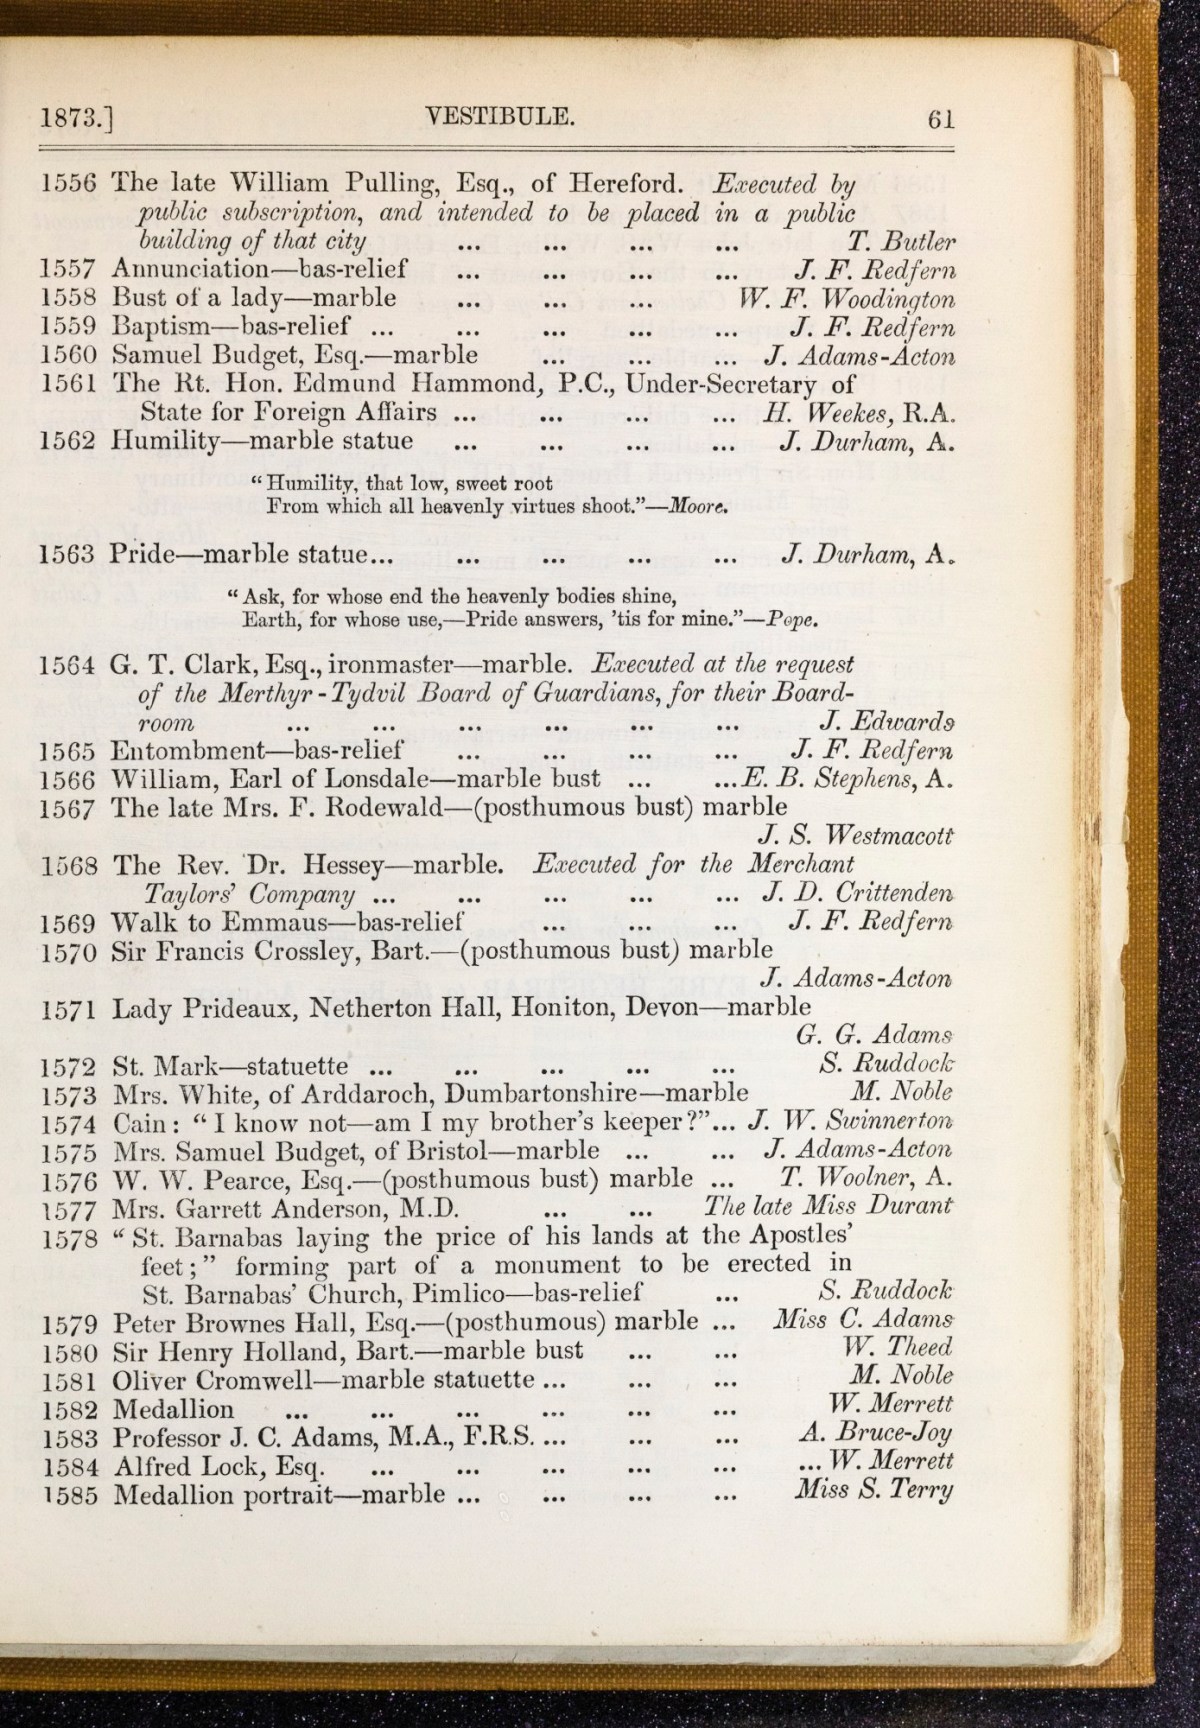 1873.] VESTIBULE. 61
1556 The late William Pulling, Esq., of Hereford. Executed by
public subscription, and intended to be placed in a public
building of that city ... ... ... ... T. Butler
1557 Annunciation—bas-relief ... ... ... ... J. F. Redfern
1558 Bust of a lady—marble ... ... ... W. F. Woodington
1559 Baptism—bas-relief ... ... ... ... ... J. F. Redfern
1560 Samuel Budget, Esq.—marble ... ... ... J. Adams-Acton
1561 The Rt. Hon. Edmund Hammond, P.C., Under-Secretary of
State for Foreign Affairs ... ... ... ... H. Weekes, R.A.
1562 Humility—marble statue ... ... ... ... J. Durham, A.
“Humility, that low, sweet root
From which all heavenly virtues shoot.”—Moore.
1563 Pride—marble statue... ... ... ... ... J. Durham, A.
“Ask, for whose end the heavenly bodies shine,
Earth, for whose use,—Pride answers, ’tis for mine.”—Pope.
1564 G. T. Clark, Esq., ironmaster—marble. Executed at the request
of the Merthyr-Tydvil Board of Guardians, for their Board-
room ... ... ... ... ... ... J. Edwards
1565 Entombment—bas-relief ... ... ... ... J. F. Redfern
1566 William, Earl of Lonsdale—marble bust ... ...E. B. Stephens, A.
1567 The late Mrs. F. Rodewald—(posthumous bust) marble
J. S. Westmacott
1568 The Rev. Dr. Hessey—marble. Executed for the Merchant
Taylors’ Company ... ... ... ... ... J. D. Crittenden
1569 Walk to Emmaus—bas-relief ... ... ... J. F. Redfern
1570 Sir Francis Crossley, Bart.—(posthumous bust) marble
J. Adams-Acton
1571 Lady Prideaux, Netherton Hall, Honiton, Devon—marble
G. G. Adams
1572 St. Mark—statuette ... ... ... ... ... S. Ruddock
1573 Mrs. White, of Arddaroch, Dumbartonshire—marble M. Noble
1574 Cain: “I know not—am I my brother’s keeper?”... J. W. Swinnerton
1575 Mrs. Samuel Budget, of Bristol—marble ... ... J. Adams-Acton
1576 W. W. Pearce, Esq.—(posthumous bust) marble ... T. Woolner, A.
1577 Mrs. Garrett Anderson, M.D. ... ... The late Miss Durant
1578 “St. Barnabas laying the price of his lands at the Apostles’
feet;” forming part of a monument to be erected in
St. Barnabas’ Church, Pimlico—bas-relief ... S. Ruddock
1579 Peter Brownes Hall, Esq.—(posthumous) marble ... Miss C. Adams
1580 Sir Henry Holland, Bart.—marble bust ... ... W. Theed
1581 Oliver Cromwell—marble statuette ... ... ... M. Noble
1582 Medallion ... ... ... ... ... ... W. Merrett
1583 Professor J. C. Adams, M.A., F.R.S. ... ... ... A. Bruce-Joy
1584 Alfred Lock, Esq. ... ... ... ... ... ... W. Merrett
1585 Medallion portrait—marble ... ... ... ... Miss S. Terry